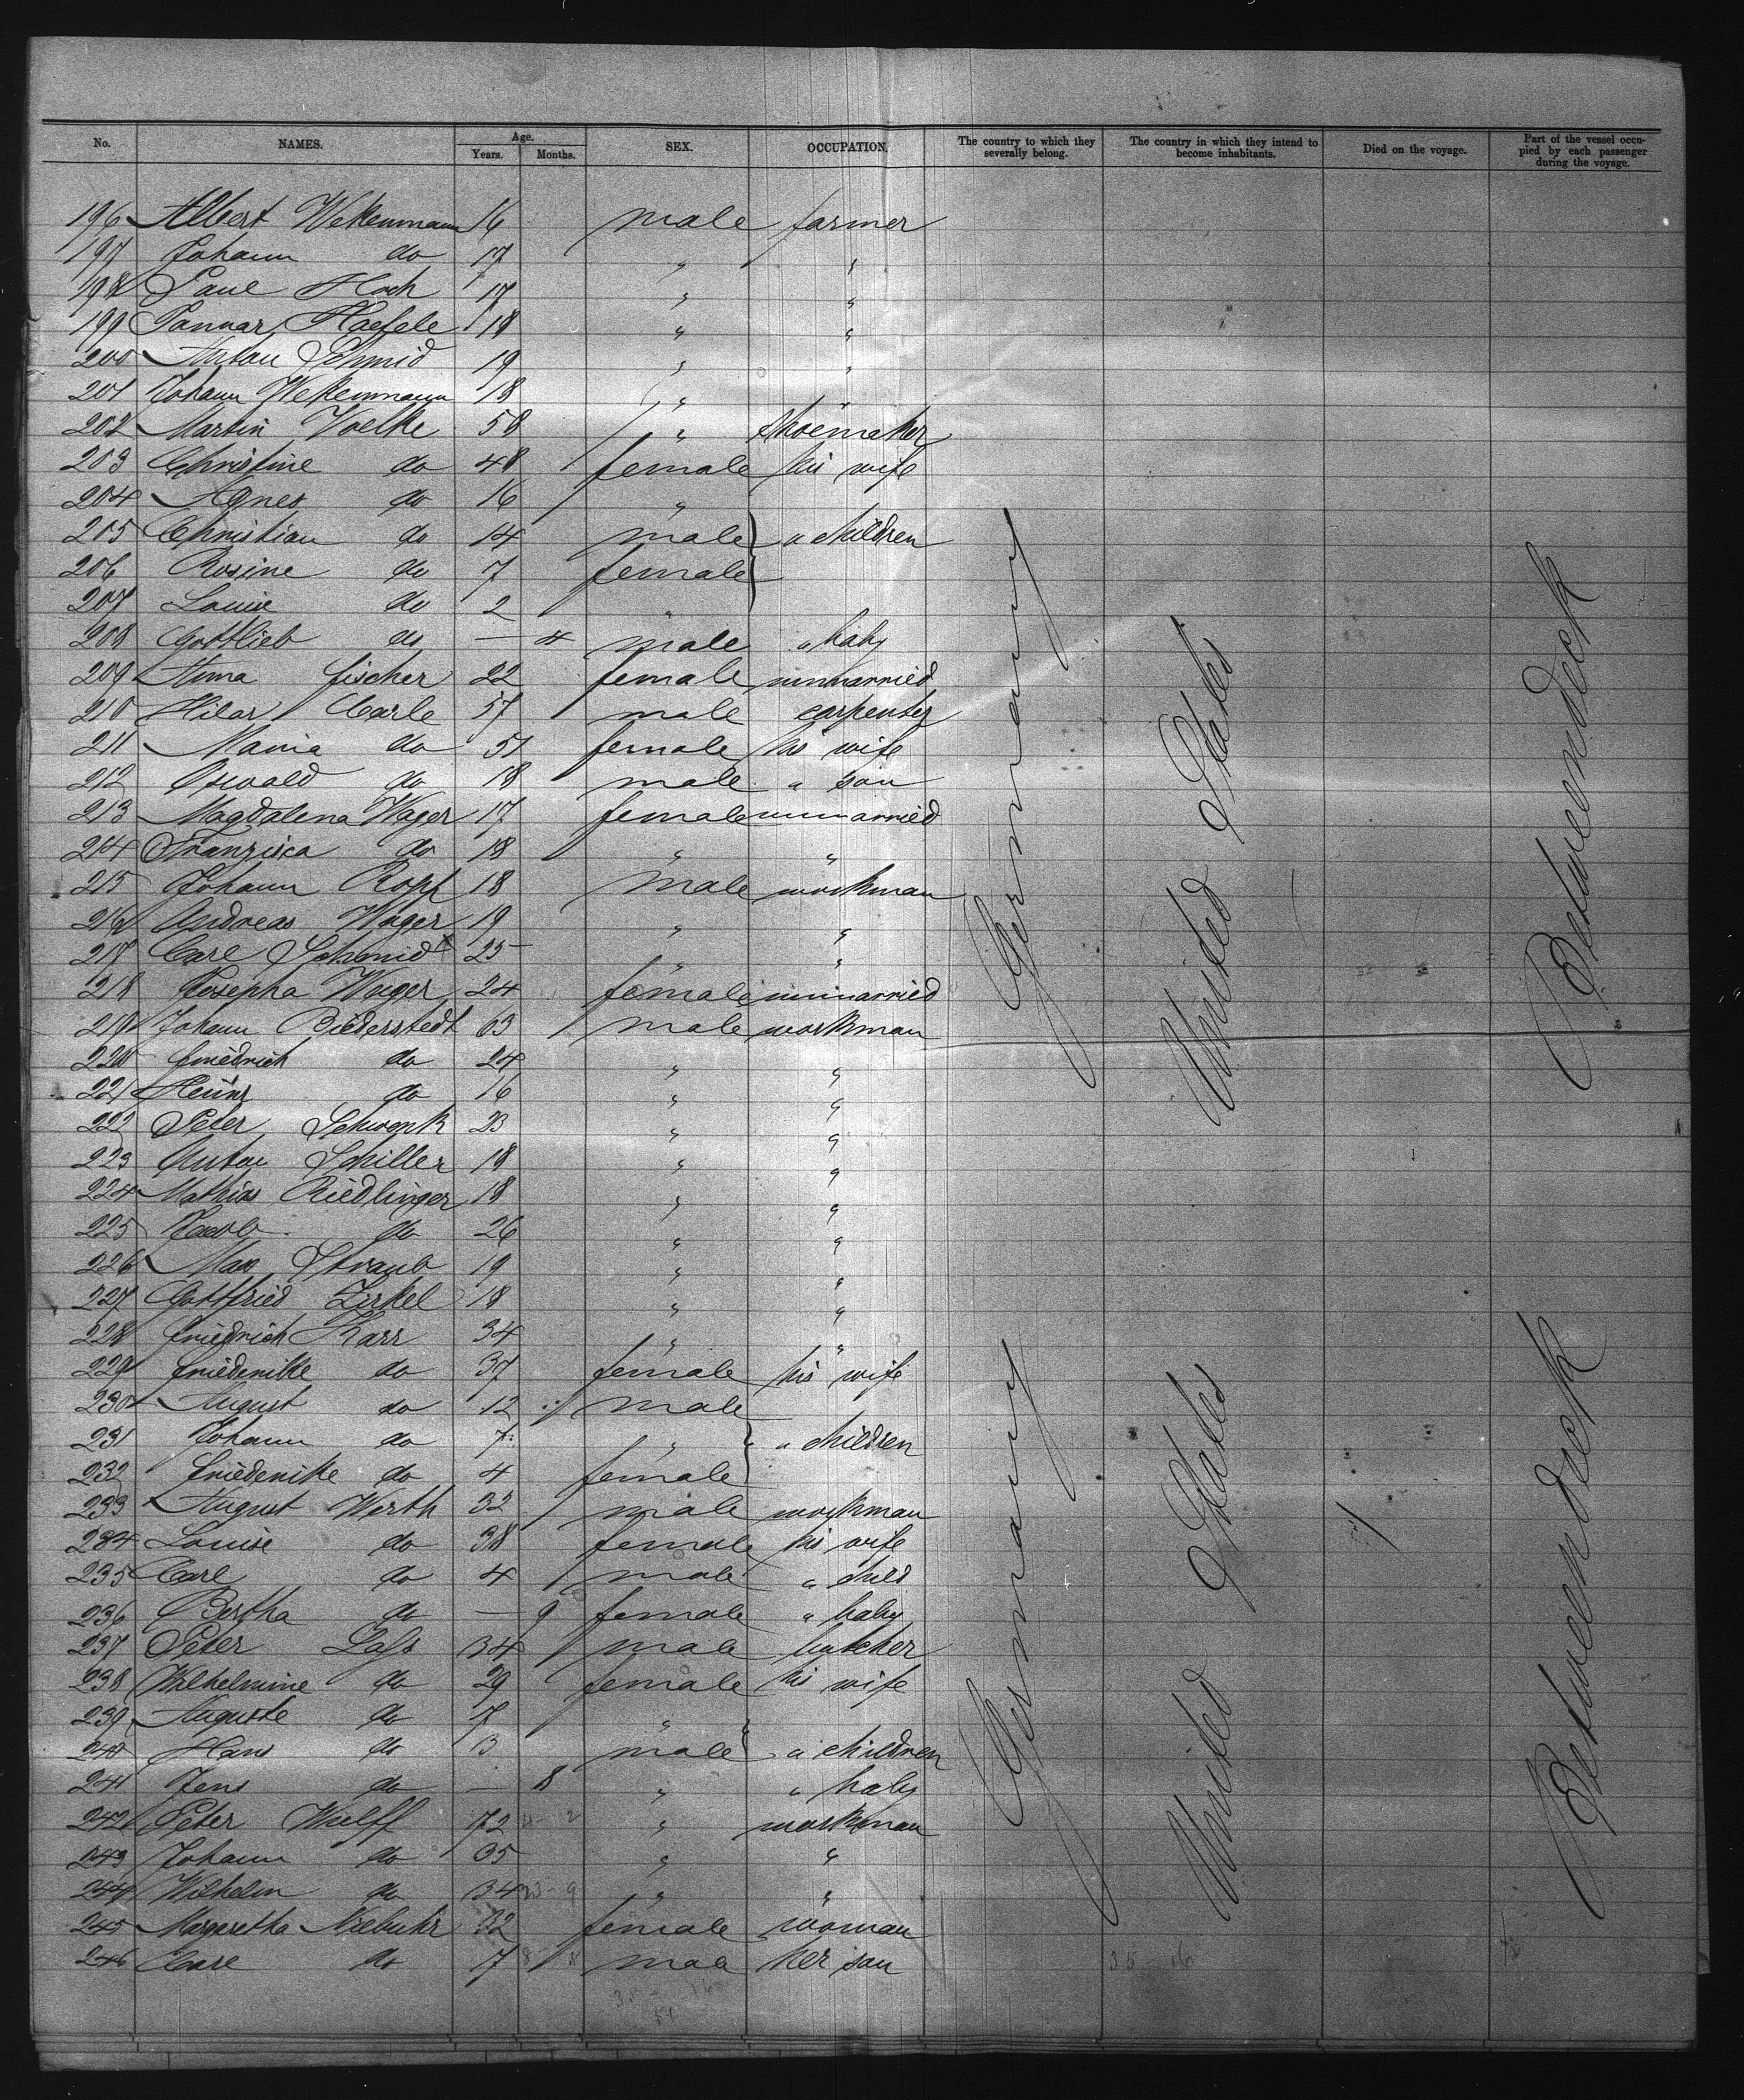 No. NAMES. Age. Years. Months. SEX. OCCUPATION. The country to which they severally belong. The country in which they intend to become inhabitants. Died on the voyage. Part of the vessel occupied by each passenger during the voyage.
196 Albert Wekenmann 16 male farmer
197 Johann do 17 " "
198 Paul Hoch 17 " "
199 Januar Haefele 18 " "
200 Anton Schmid 19 " "
201 Johann Wekenmann 18 " "
202 Martin Voelke 58 " shoemaker
203 Christine do 48 female his wife
204 Agnes do 16 "
205 Christian do 14 male " children
206 Rosine do 7 female
207 Louise do 2 "
208 Gottlieb do — 4 male " baby
209 Anna Fischer 22 female unmarried
210 Hilar Carle 57 male carpenter
211 Maria do 51 female his wife
212 Oswald do 18 male " son
213 Magdalena Wager 17 female unmarried
214 Franzisca do 18 " "
215 Johann Ropf 18 male workman
216 Andreas Wager 19 " "
217 Carl Schmidt 25 " "
218 Josepha Wager 24 female unmarried
219 Johann Biederstedt 63 male workman
220 Friedrich do 24 " "
221 Heinr do 16 " "
222 Peter Schwenk 23 " "
223 Anton Schiller 18 " "
224 Mathias Riedlinger 18 " "
225 Jacob do 26 " "
226 Max Straub 19 " "
227 Gottfried Zirkel 18 " "
228 Friedrich Karr 34 " "
229 Friederike do 37 female his wife
230 August do 12 male
231 Johann do 7 " " children
232 Friederike do 4 female
233 August Werth 32 male workman
234 Louise do 38 female his wife
235 Carl do 4 male " child
236 Bertha do — 9 female " baby
237 Peter Lass 34 male butcher
238 Wilhelmine do 29 female his wife
239 Auguste do 7 "
240 Hans do 3 male " children
241 Jens do — 8 " " baby
242 Peter Wulff 72 " workman
243 Johann do 35 " "
244 Wilhelm do 34 " "
245 Margaretha Niebuhr 32 female woman
246 Carl do 7 male her son
Germany United States Betweendeck
Germany United States 1 Betweendeck